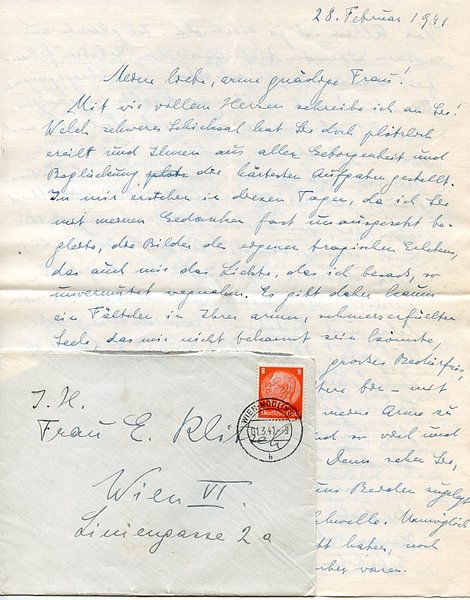 28. Februar 1941
Meine liebe, arme gnädige Frau!
Mit wie vollem Herzen schreibe ich an Sie!
Welch schweres Schicksal hat Sie doch plötzlich
ereilt und Ihnen aus aller Geborgenheit und
Beglückung die härtesten Aufgaben gestellt.
In mir erstehen in diesen Tagen, da ich Sie
mit meinen Gedanken fast unausgesetzt be-
gleite, die Bilder des eigenen tragischen Erlebens,
das auch mir das Liebste, das ich besass, so
unvermutet wegnahm. Es gibt daher kaum
ein Fältchen in Ihrer armen, schmerzerfüllten
Seele, das mir nicht bekannt sein könnte,
großes Bedürfnis,
mit
meine Arme zu
und so viel und
Denn sehen Sie,
uns Beiden
schwelle. Unmöglich
haben, noch
waren.
8 8
Deutsches Reich
WIEN-MÖDLING
01.3.41
b
I. H.
Frau E. Klitsch
Wien VI.
Liniengasse 2a